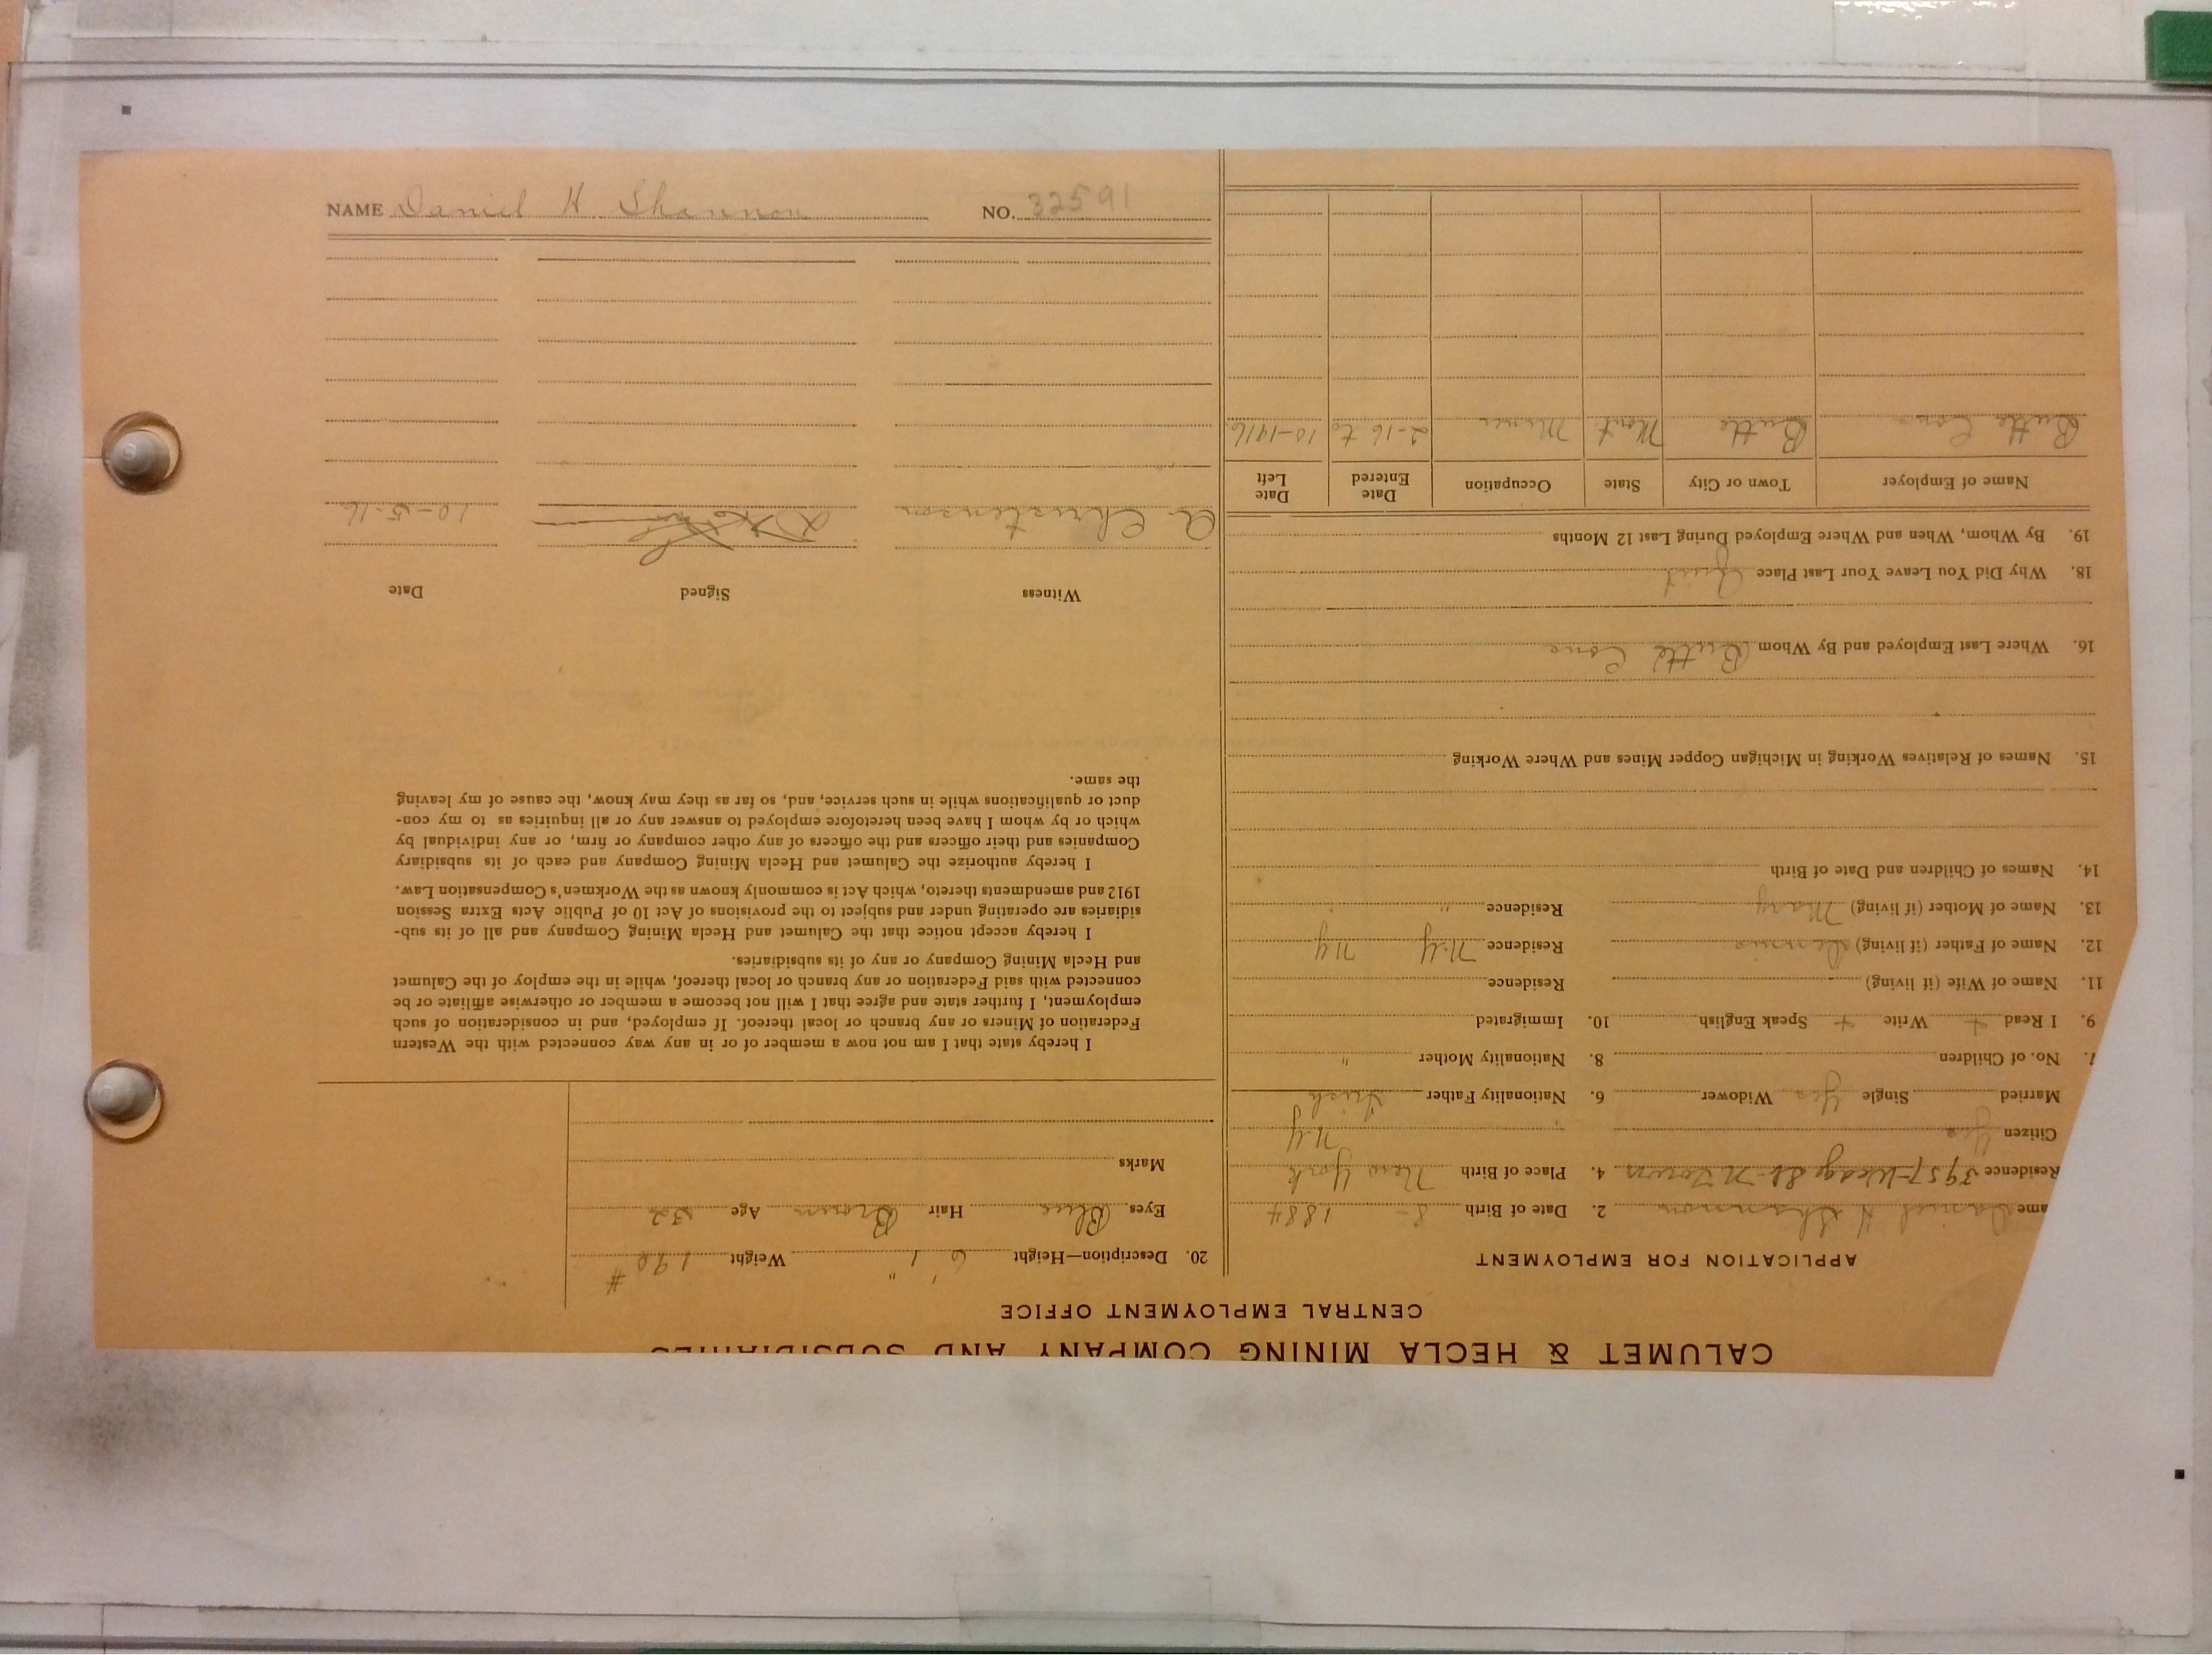 NAME Daniel H Shannon NO. 32591
CALUMET & HECLA MINING COMPANY AND SUBSIDIARIES
CENTRAL EMPLOYMENT OFFICE
APPLICATION FOR EMPLOYMENT
ame Daniel H Shannon 2. Date of Birth 8- 1884
Residence 3957-Wedge St- 4. Place of Birth New York
N.Y
Citizen Yes
Married Single Yes Widower 6. Nationality Father Irish
7. No. of Children 8. Nationality Mother "
9. I Read + Write + Speak English 10. Immigrated
11. Name of Wife (if living) Residence
12. Name of Father (if living) Dennis Residence N.Y N.Y
13. Name of Mother (if living) Mary Residence " "
14. Names of Children and Date of Birth
15. Names of Relatives Working in Michigan Copper Mines and Where Working
16. Where Last Employed and By Whom Butte Cons
18. Why Did You Leave Your Last Place Quit
19. By Whom, When and Where Employed During Last 12 Months
Name of Employer Town or City State Occupation Date Entered Date Left
Butte Cons Butte Mont. Miner 2-16 to 10-1916
20. Description—Height 6' 1" Weight 190 #
Eyes Blue Hair Brown Age 32
Marks
I hereby state that I am not now a member of or in any way connected with the Western
Federation of Miners or any branch or local thereof. If employed, and in consideration of such
employment, I further state and agree that I will not become a member or otherwise affiliate or be
connected with said Federation or any branch or local thereof, while in the employ of the Calumet
and Hecla Mining Company or any of its subsidiaries.
I hereby accept notice that the Calumet and Hecla Mining Company and all of its sub-
sidiaries are operating under and subject to the provisions of Act 10 of Public Acts Extra Session
1912 and amendments thereto, which Act is commonly known as the Workmen's Compensation Law.
I hereby authorize the Calumet and Hecla Mining Company and each of its subsidiary
Companies and their officers and the officers of any other company or firm, or any individual by
which or by whom I have been heretofore employed to answer any or all inquiries as to my con-
duct or qualifications while in such service, and, so far as they may know, the cause of my leaving
the same.
Witness Signed Date
A Christenson 10-5-16